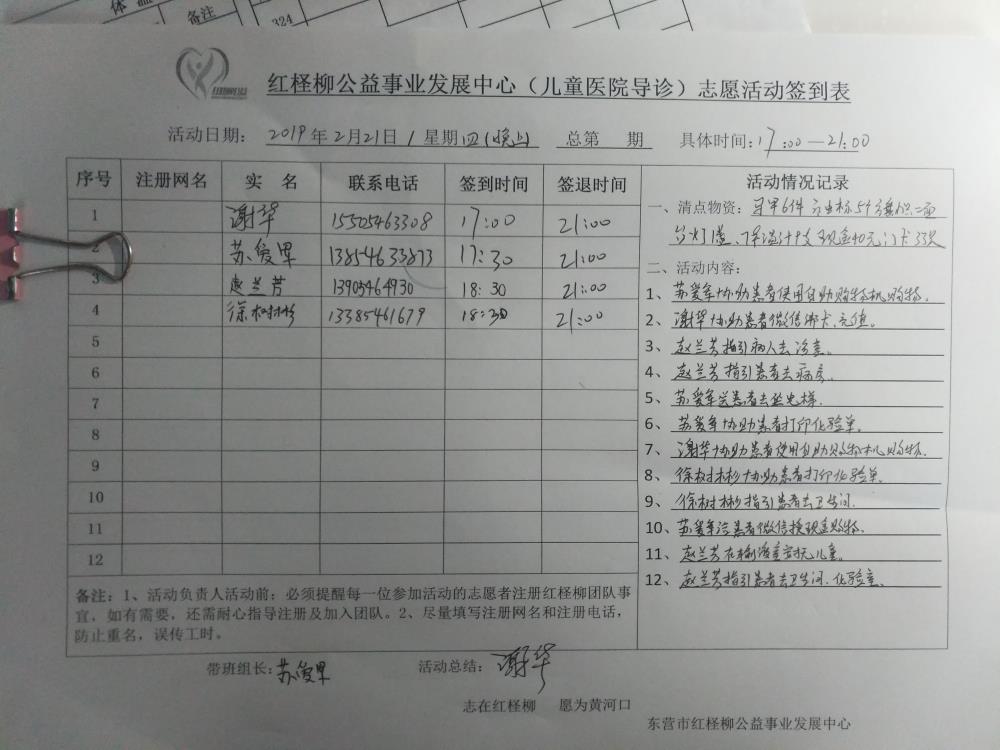 备注
324
红柽柳公益事业发展中心（儿童医院导诊）志愿活动签到表
活动日期：2019年2月21日/星期四(晚上) 总第 期 具体时间：17:00—21:00
序号 注册网名 实 名 联系电话 签到时间 签退时间 活动情况记录
1 谢华 15505463308 17:00 21:00
2 苏爱军 13854633873 17:30 21:00
3 赵兰芳 13905464930 18:30 21:00
4 徐树彬 13385461679 18:30 21:00
5
6
7
8
9
10
11
12
一、清点物资：马甲6件
台灯1盏、现金40元、卡33次
二、活动内容：
1、苏爱军协助患者使用自助购物机购物.
2、谢华协助患者微信绑卡、充值。
3、赵兰芳指引病人去诊室.
4、赵兰芳指引患者去病房.
5、苏爱军送患者去坐电梯.
6、苏爱军协助患者打印化验单.
7、谢华协助患者使用自助购物机购物.
8、徐树彬协助患者打印化验单.
9、徐树彬指引患者去卫生间.
10、苏爱军给患者微信换现金购物.
11、赵兰芳在输液室安抚儿童。
12、赵兰芳指引患者去卫生间.化验室.
备注：1、活动负责人活动前：必须提醒每一位参加活动的志愿者注册红柽柳团队事
宜，如有需要，还需耐心指导注册及加入团队。2、尽量填写注册网名和注册电话，
防止重名，误传工时。
带班组长：苏爱军 活动总结：谢华
志在红柽柳 愿为黄河口
东营市红柽柳公益事业发展中心